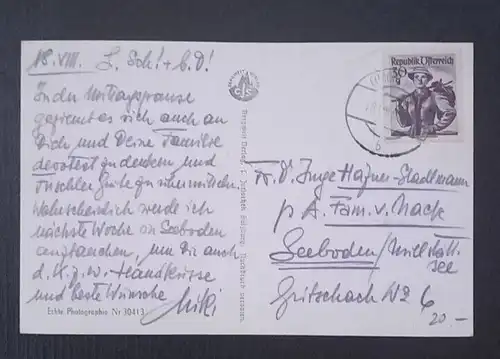 18. VIII. L. Sch! + b. D!
In der Mittagspause
geziemt es sich auch an
Dich und Deine Familie
devotest zu denken und
Fuschler Grüße zu übermitteln.
Wahrscheinlich werde ich
nächste Woche in Seeboden
auftauchen, um Dir auch
d. H. z. w. Handküsse
und beste Wünsche
Miki
Echte Photographie Nr 30413
Republik Österreich
30
g
Inge Hafner-Stadtmann
p A. Fam. v. Mack
Seeboden/Millstatt-
see
Gritschach No 6
20-